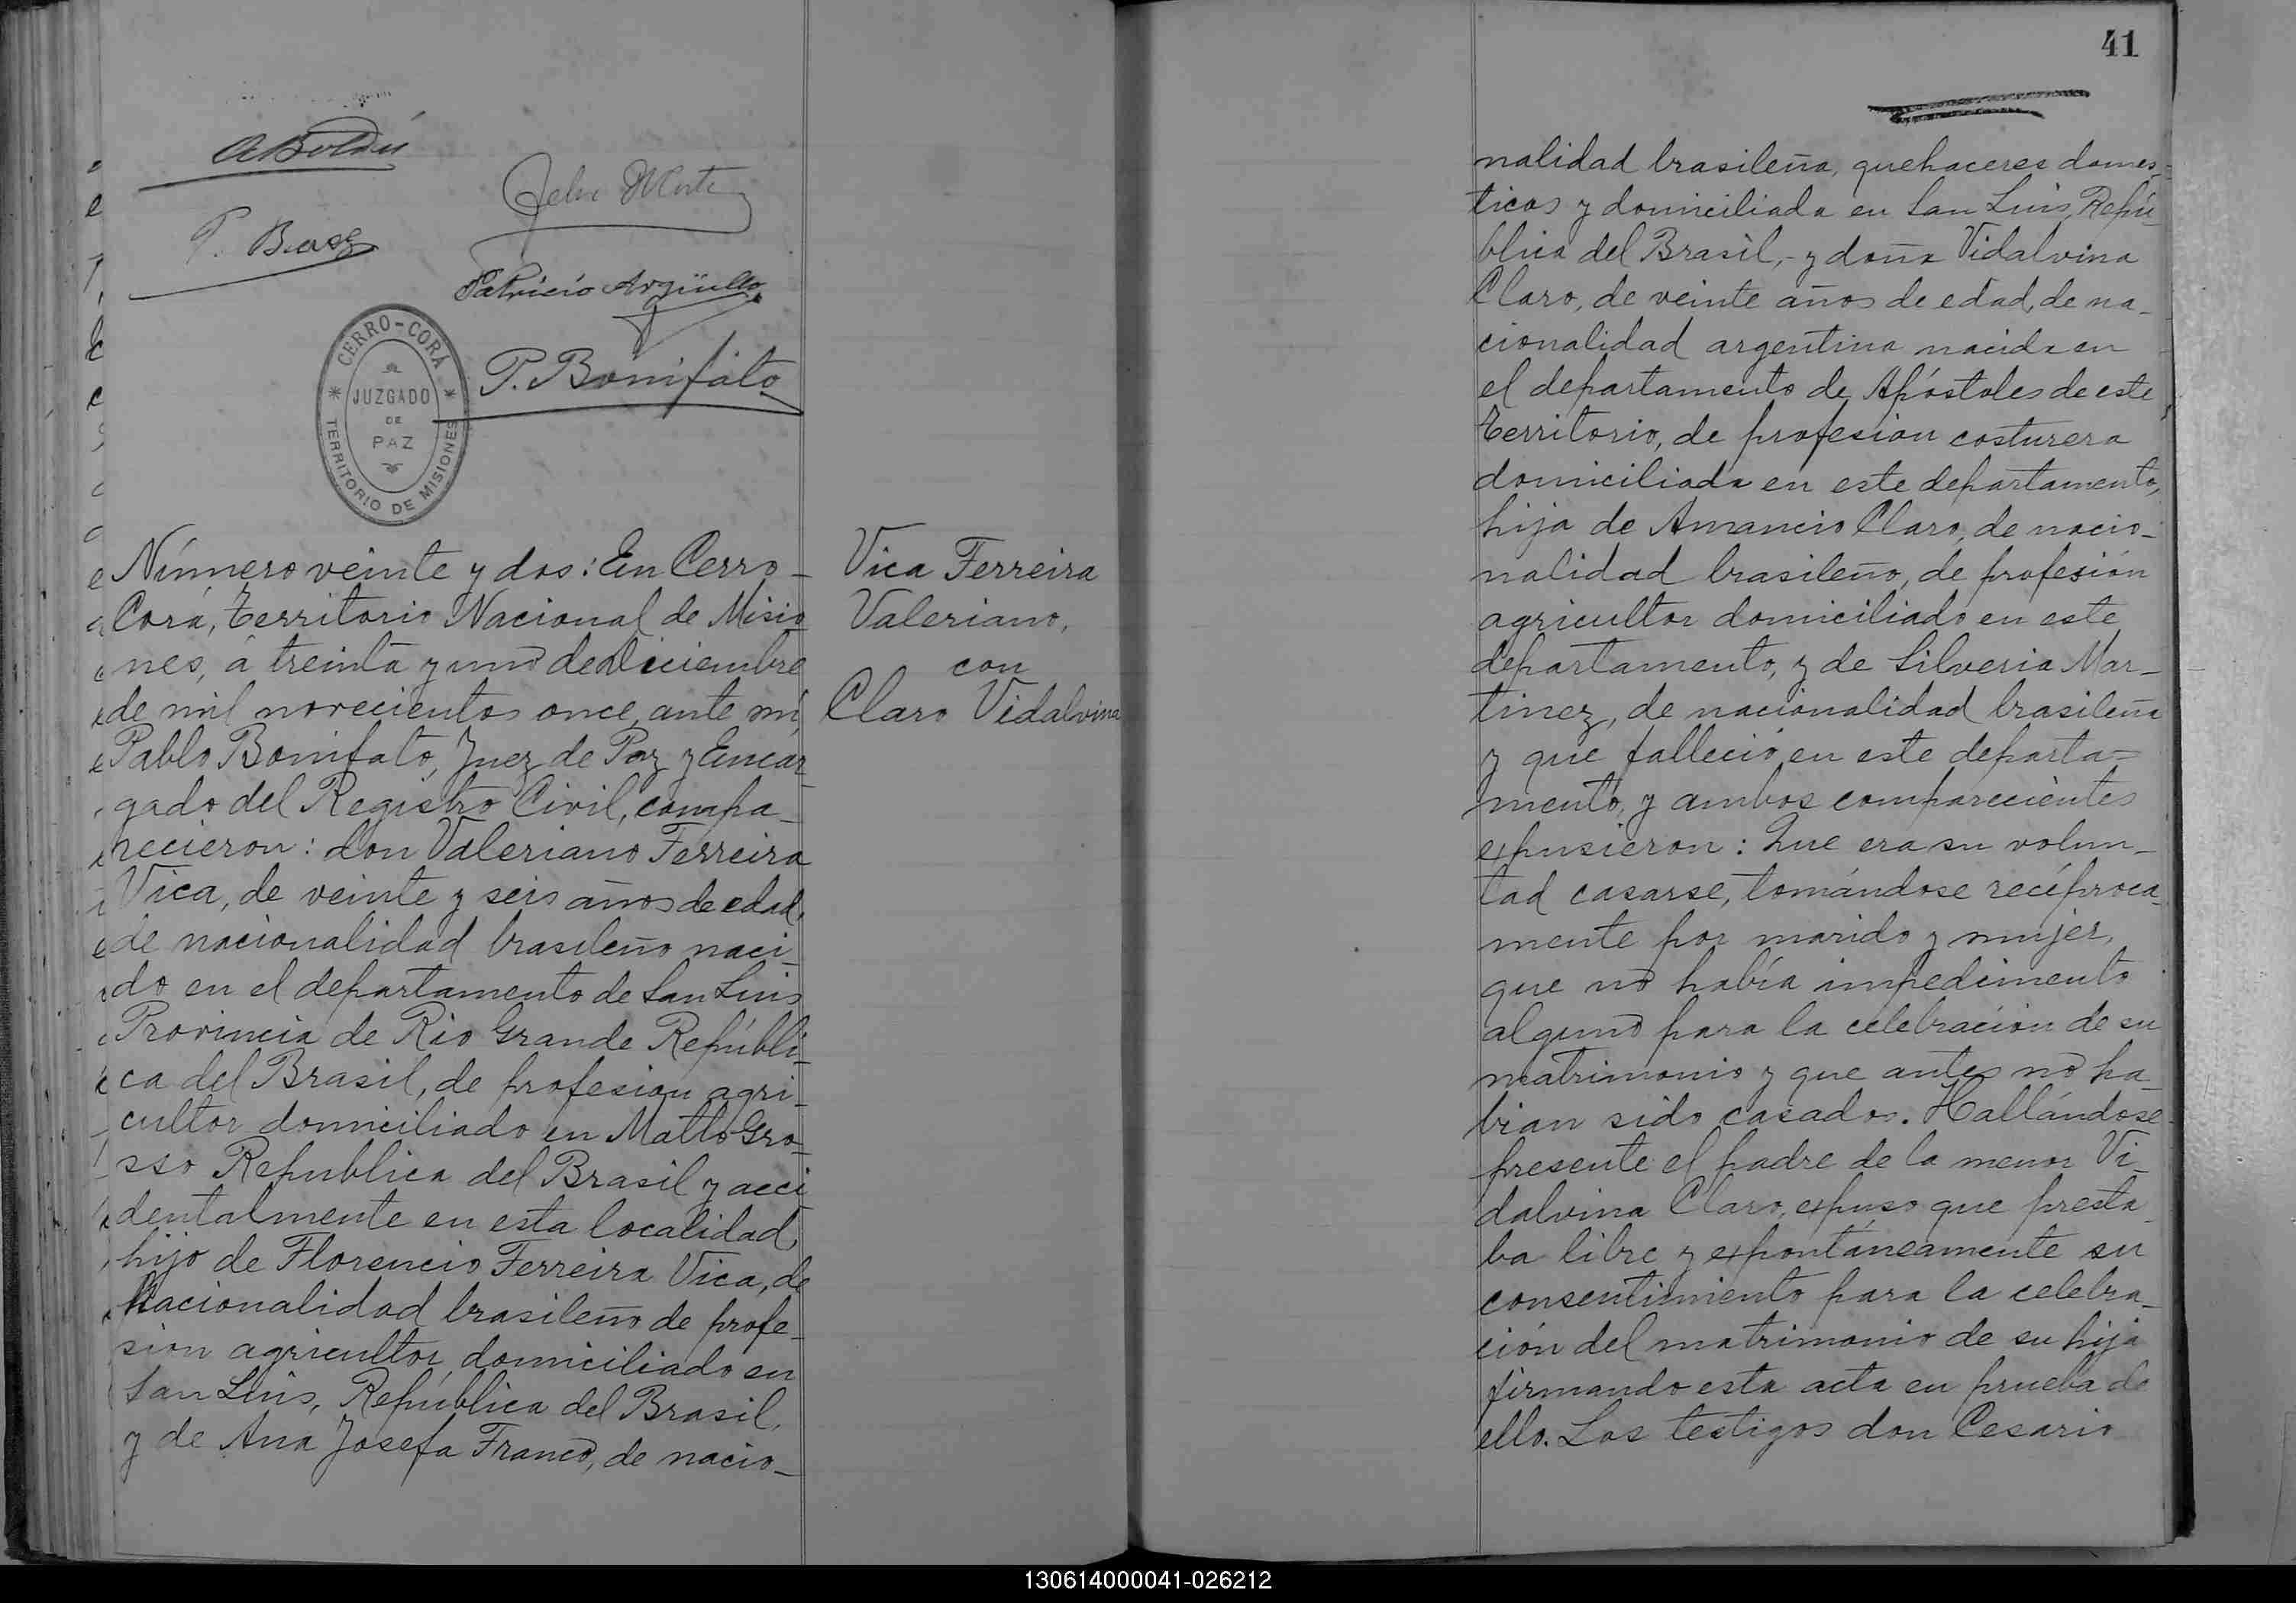 P. Baez
Patricio Argüello
P. Bonifato
CERRO-CORÁ
JUZGADO
DE
PAZ
TERRITORIO DE MISIONES
Número veinte y dos: En Cerro-
Corá, Territorio Nacional de Misio
nes, á treinta y uno de Diciembre
de mil novecientos once, ante mí,
Pablo Bonifato, Juez de Paz y Encar
gado del Registro Civil, compa-
recieron: don Valeriano Ferreira
Vica, de veinte y seis años de edad,
de nacionalidad brasileño naci-
do en el departamento de San Luis
Provincia de Rio Grande Repúbli-
ca del Brasil, de profesion agri-
cultor domiciliado en Matto Gro-
sso Republica del Brasil y acci
dentalmente en esta localidad,
hijo de Florencio Ferreira Vica, de
nacionalidad brasileño de profe-
sion agricultor, domiciliado en
San Luis, República del Brasil,
y de Ana Josefa Franco, de nacio-
Vica Ferreira
Valeriano,
con
Claro Vidalvina
41
nalidad brasileña, quehaceres domes-
ticos y domiciliada en San Luis, Repú-
blica del Brasil,- y doña Vidalvina
Claro, de veinte años de edad, de na-
cionalidad argentina nacida en
el departamento de Apóstoles de este
Territorio, de profesion costurera
domiciliada en este departamento,
hija de Amancio Claro, de nacio-
nalidad brasileño, de profesión
agricultor domiciliado en este
departamento, y de Silveria Mar-
tinez, de nacionalidad brasileña
y que falleció en este departa=
mento, y ambos comparecientes
expusieron: Que era su volun-
tad casarse, tomándose recíproca-
mente por marido y mujer,
que no había impedimento
alguno para la celebración de su
matrimonio y que antes no ha-
bian sido casados. Hallándose
presente el padre de la menor Vi-
dalvina Claro, expuso que presta
ba libre y expontáneamente su
consentimiento para la celebra-
ción del matrimonio de su hija
firmando esta acta en prueba de
ello. Los testigos don Cesario
130614000041-026212